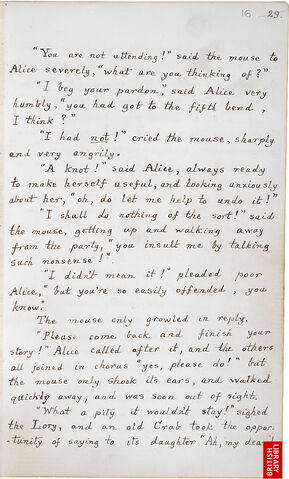 16 29.
"You are not attending!" said the mouse to
Alice severely, "what are you thinking of?"
"I beg your pardon," said Alice very
humbly, "you had got to the fifth bend,
I think?"
"I had not!" cried the mouse, sharply
and very angrily.
"A knot!" said Alice, always ready
to make herself useful, and looking anxiously
about her, "oh, do let me help to undo it!"
"I shall do nothing of the sort!" said
the mouse, getting up and walking away
from the party, "you insult me by talking
such nonsense!"
"I didn't mean it!" pleaded poor
Alice, "but you're so easily offended, you
know."
The mouse only growled in reply.
"Please come back and finish your
story!" Alice called after it, and the others
all joined in chorus "yes, please do!" but
the mouse only shook its ears, and walked
quickly away, and was soon out of sight.
"What a pity it wouldn't stay!" sighed
the Lory, and an old Crab took the oppor-
-tunity of saying to its daughter "Ah, my dear!
BRITISH
LIBRARY